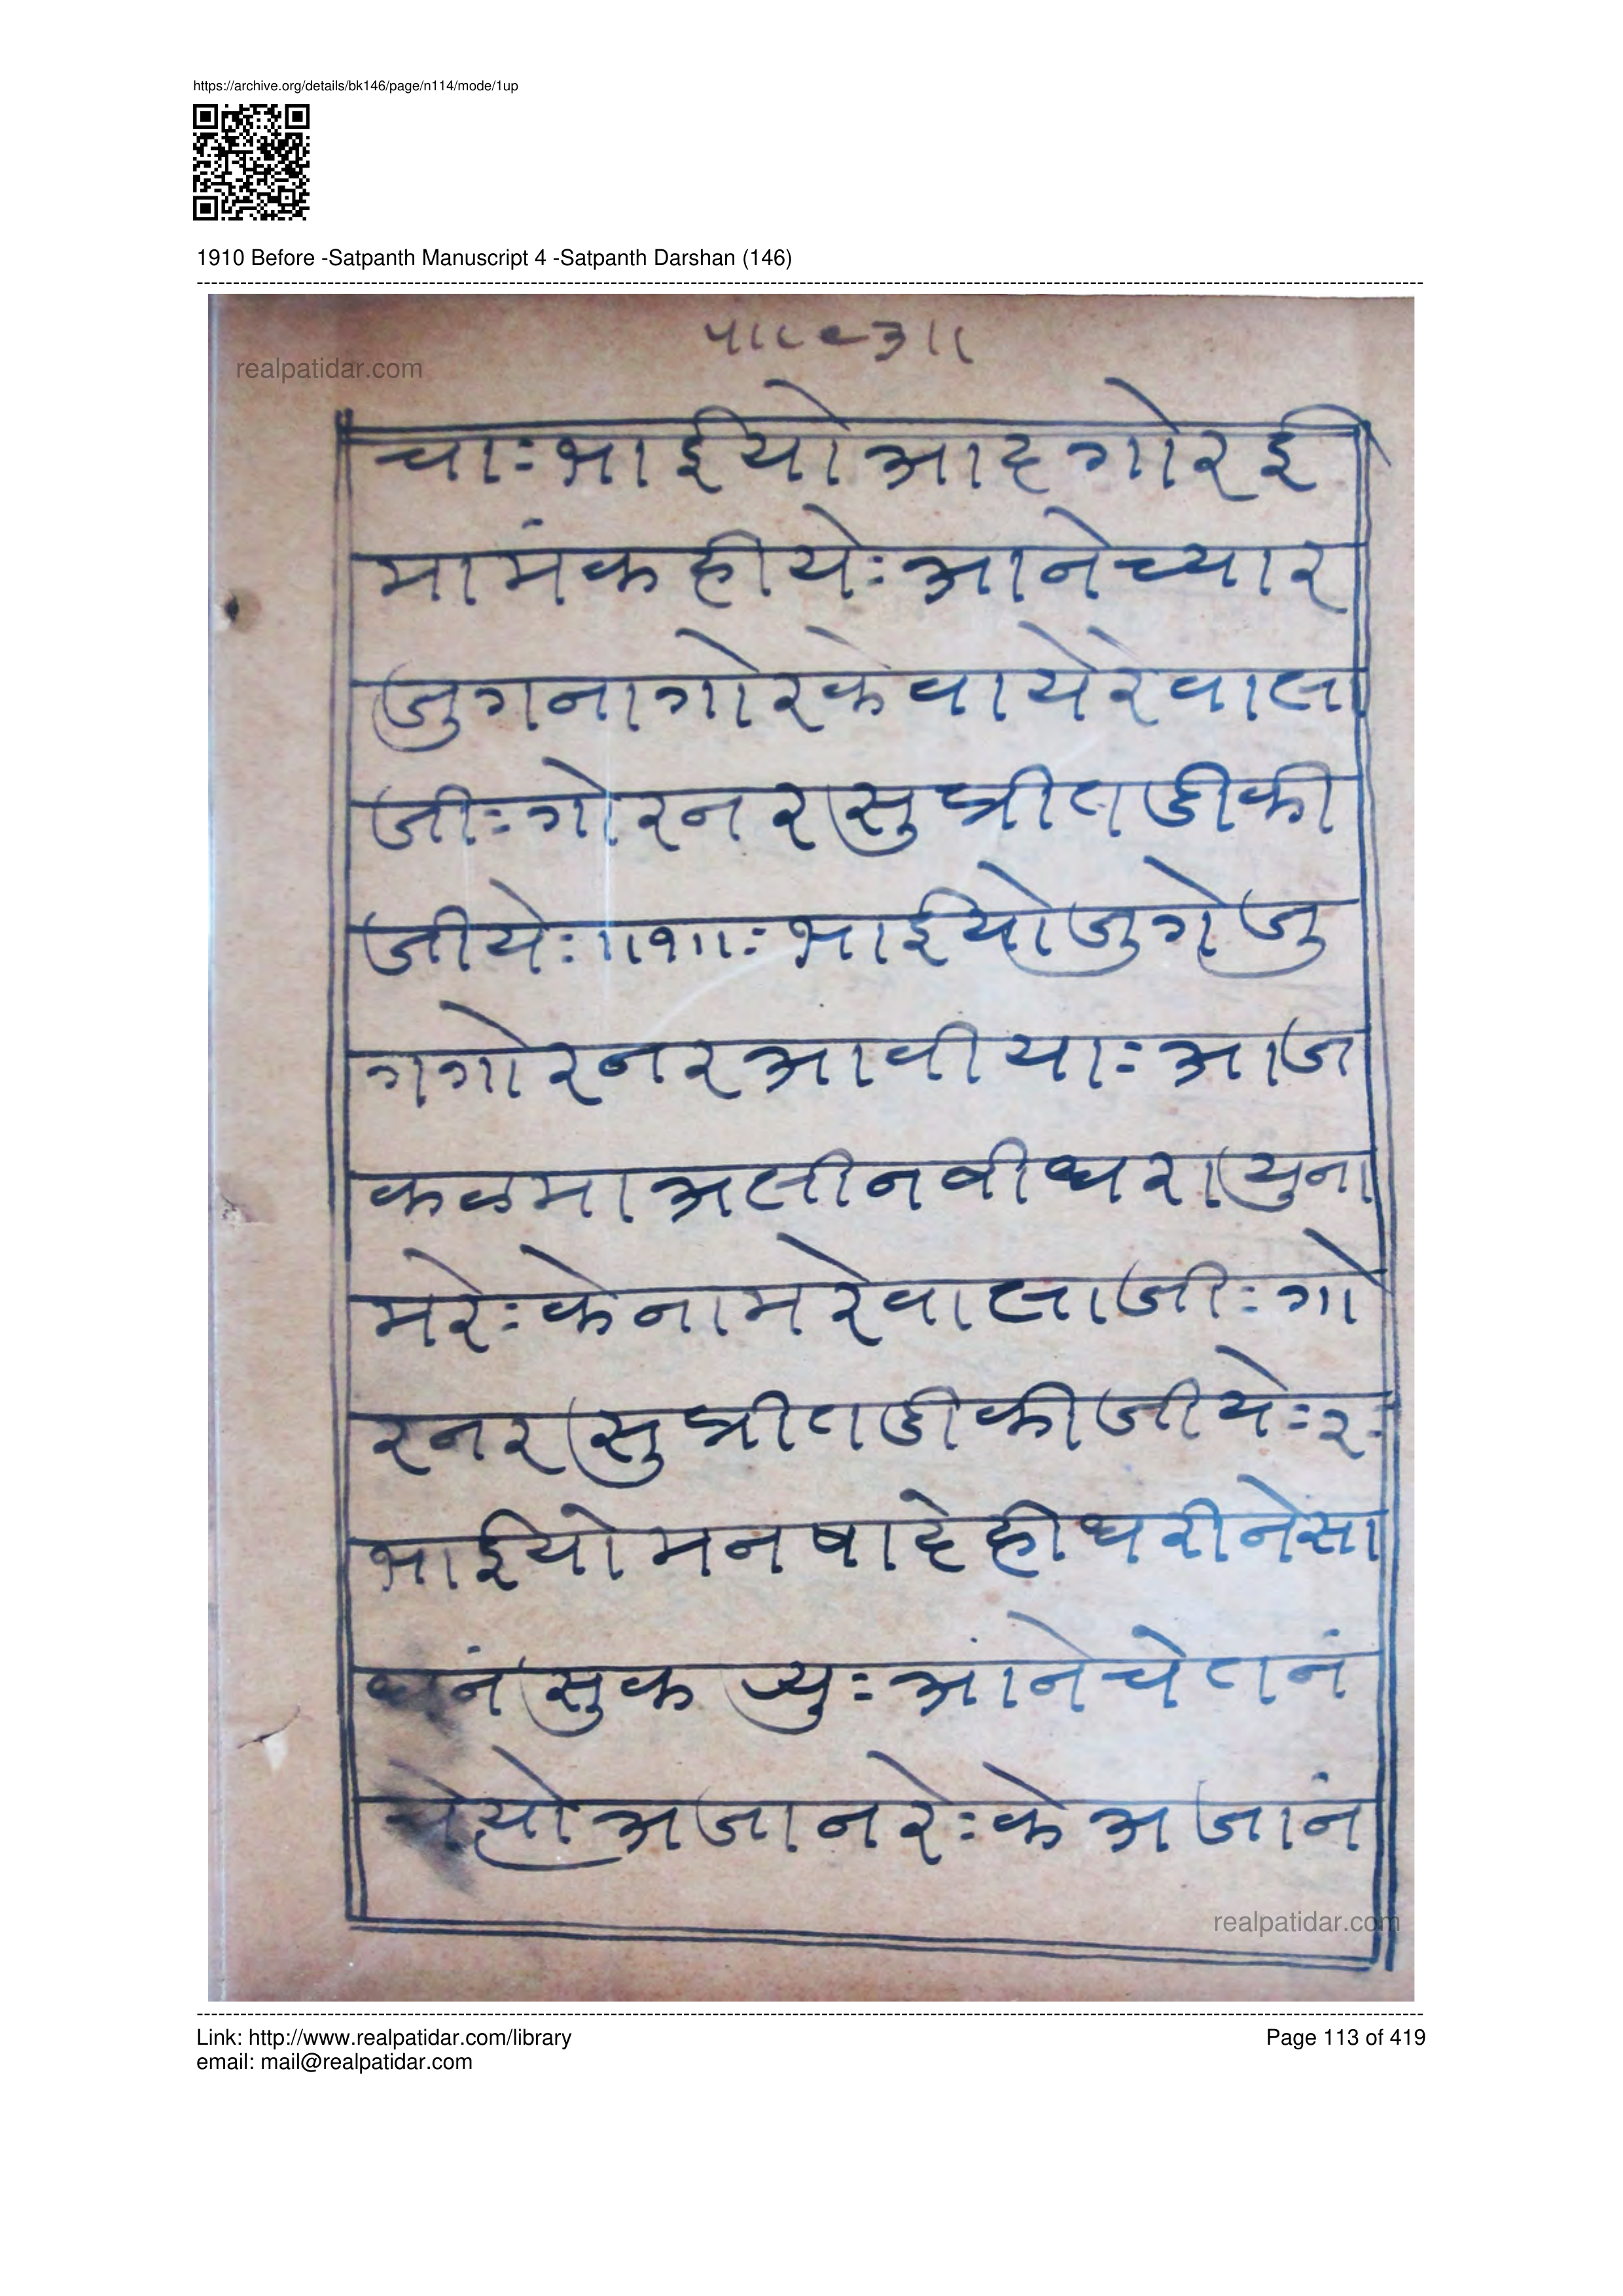 https://archive.org/details/bk146/page/n114/mode/1up
1910 Before -Satpanth Manuscript 4 -Satpanth Darshan (146)
realpatidar.com
चाःभाईयोआदगोरई
मामंकहीयेःआनेच्यार
जुगनागोरकेवायेरेवाला
जीःगोरनरसुप्रीतडीकी
जीयेः॥१॥ःभाईयोजुगेजु
गगोरनरआवीयाःआज
कळमाअलीनबीधरायुना
मरेःकेनामरेवालाजीःगो
रनरसुप्रीतडीकीजीयेः२ः
भाईयोमनषादेहीधरीनेसा
धनंसुकर्युःआंनेचेतनं
अजानरेःकेअजानं
realpatidar.com
Link: http://www.realpatidar.com/library
Page 113 of 419
email: mail@realpatidar.com